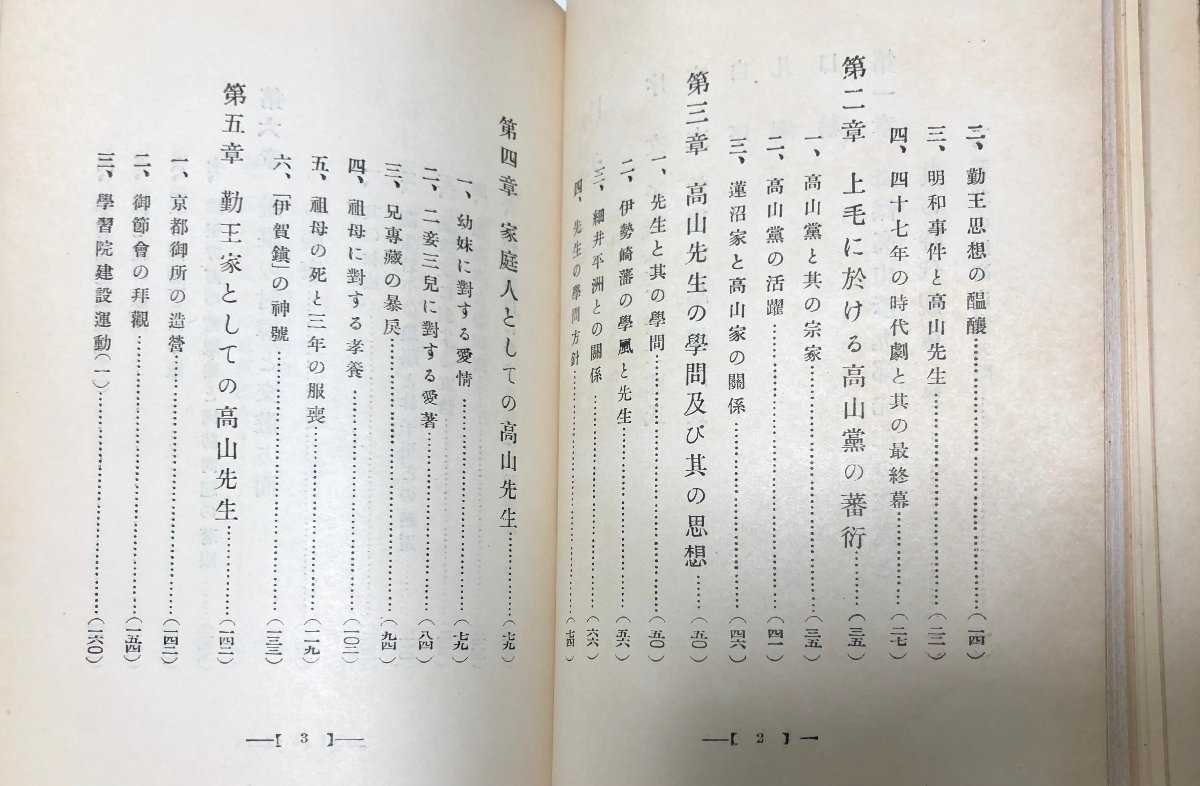 二、勤王思想の醞釀………(一四)
三、明和事件と高山先生………(二二)
四、四十七年の時代劇と其の最終幕………(二七)
第二章 上毛に於ける高山黨の蕃衍………(三五)
一、高山黨と其の宗家………(三五)
二、高山黨の活躍………(四一)
三、蓮沼家と高山家の關係………(四六)
第三章 高山先生の學問及び其の思想……(五〇)
一、先生と其の學問………(五〇)
二、伊勢崎藩の學風と先生………(五六)
三、細井平洲との關係………(六六)
四、先生の學問方針………(七四)
—【 2 】—
第四章 家庭人としての高山先生………(七九)
一、幼妹に對する愛情………(七九)
二、二妾三兒に對する愛著………(八四)
三、兄專藏の暴戻………(九四)
四、祖母に對する孝養………(一〇二)
五、祖母の死と三年の服喪………(一一九)
六、「伊賀鎭」の神號………(一三三)
第五章 勤王家としての高山先生………(一四二)
一、京都御所の造營………(一四二)
二、御節會の拜觀………(一五四)
三、學習院建設運動(一)………(一六〇)
—【 3 】—